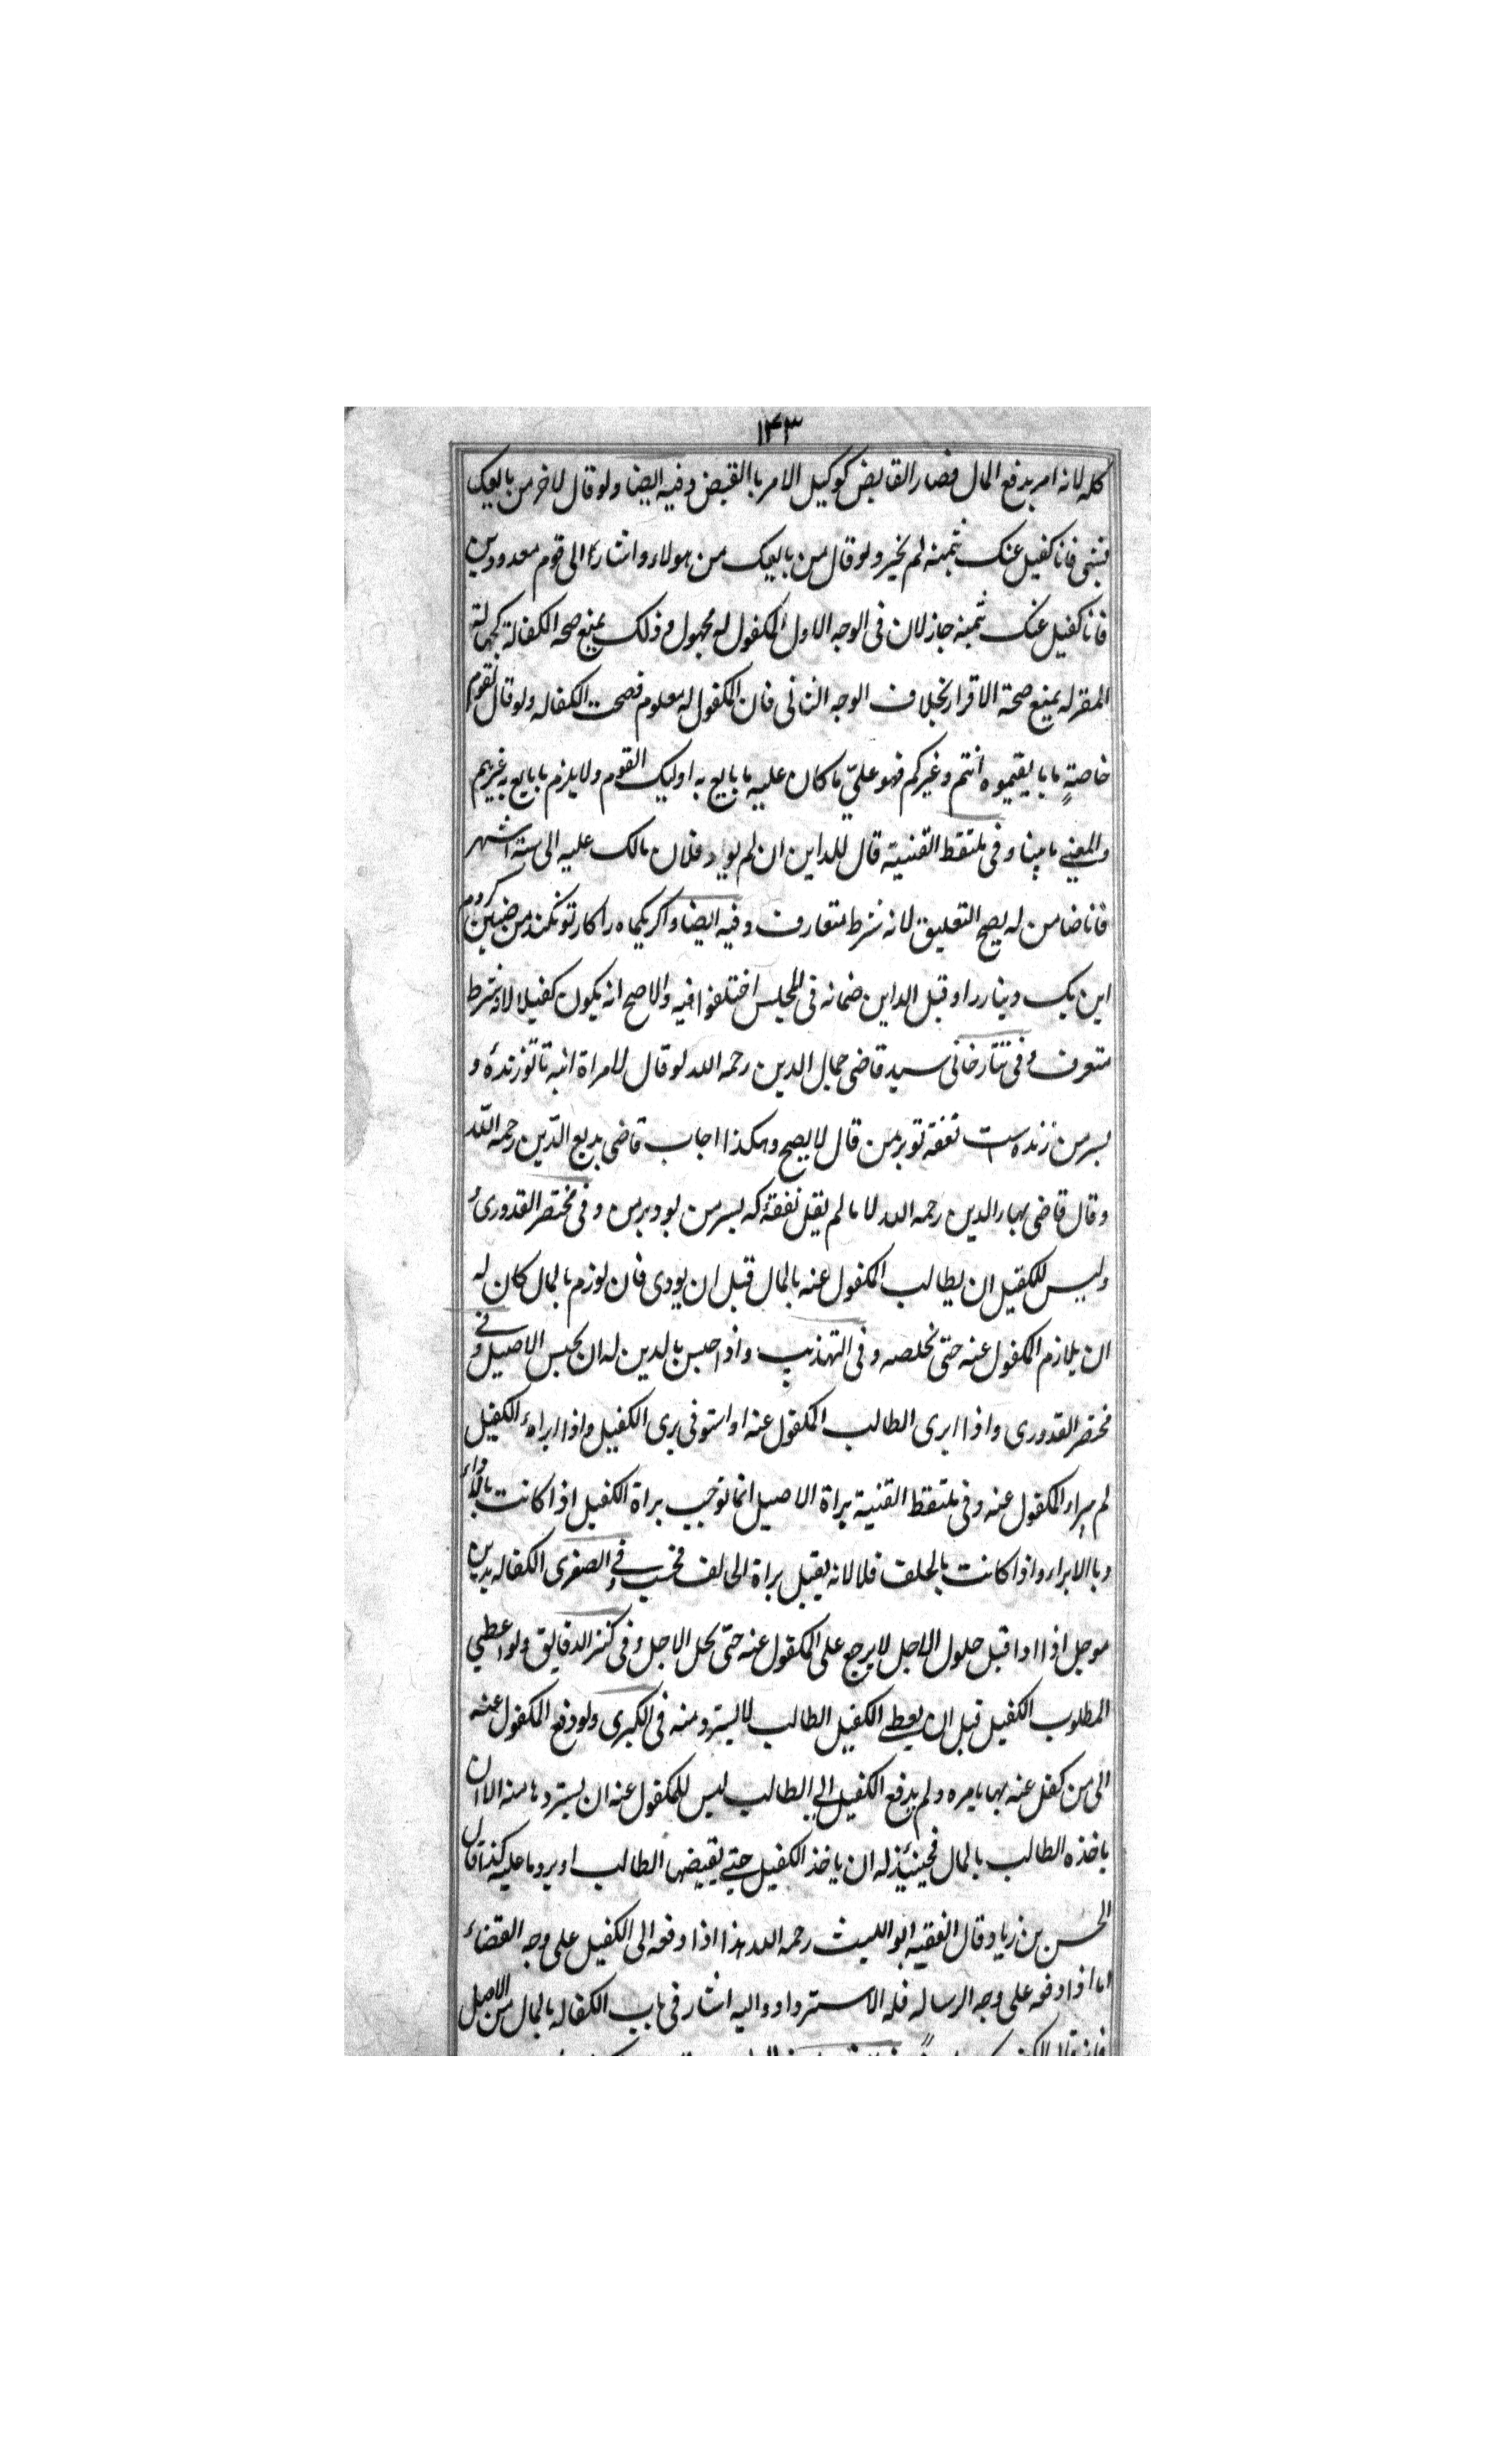 ١٤٣
كله لانه امر بدفع المال فصار القابض كوكيل الامر باالقبض وفيه ايضا ولو قال لاخر من بايعك
فانا كفيل عنك ثمنه لم يخير ولو قال من بايعك من هولاء واشار الى قوم معدودين
فانا كفيل عنك ثمنه جاز لان فى الوجه الاول المكفول له مجهول وذلك يمنع صحة الكفالة كجهالة
المقرله يمنع صحة الاقرار بخلاف الوجه الثانى فان المكفول له معلوم فصحت الكفاله ولو قال لقوم
خاصةٍ ما بايعتموه انتم وغيركم فهو علىّ ما كان عليه ما بايع به اوليك القوم ولا يلزم ما بايع به غيرهم
والمعنے ما بينا وفى ملتقط القنية قال للداين ان لم يود فلان مالك عليه الى ستة اشهر
فانا ضامن له يصح التعليق لانه شرط متعارف وفيه ايضا واكر يكماه را كار تو نكند من ضمين كردم
اين يك دينار را وقبل الداين ضمانه فى المجلس اختلفوا فيه والاصح انه يكون كفيلا لانه شرط
متعرف وفى تتارخانى سيد قاضى جمال الدين رحمه الله لو قال لامراة ابنه تا تو زندهٔ و
پسر من زنده است نفقه تو بر من قال لا يصح وهكذا اجاب قاضى بديع الدّين رحمه اللّه
وقال قاضى بهاء الدين رحمه الله لا ما لم يقل نفقهٔ كه پسر من بود بر من وفى مختصر القدورى
وليس للكفيل ان يطالب المكفول عنه بالمال قبل ان يودى فان لوزم بالمال كان له
ان يلازم المكفول عنه حتى يخلصه وفى التهذيب واذا حبس بالدين له ان يحبس الاصيل وفے
مختصر القدورى واذا ابرى الطالب المكفول عنه او استوفى برى الكفيل واذا ابراء الكفيل
لم يبراء المكفول عنه وفى ملتقط القنية براة الاصيل انما توجب براة الكفيل اذا كانت بالاداء
وبا الابراء واذا كانت بالحلف فلا لانه يقبل براة الحالف فحسب وفے الصغرى الكفاله بدين
موجل اذا ادا قبل حلول الاجل لا يرجع على المكفول عنه حتّى يحل الاجل وفى كنز الدقايق ولو اعطى
المطلوب الكفيل قبل ان يعطے الكفيل الطالب لا يسترد منه فى الكبرى ولو دفع المكفول عنه
الى من كفل عنه بها بامره ولم يدفع الكفيل الى الطالب ليس للمكفول عنه ان يسترد ها منه الا ان
ياخذه الطالب بالمال فحينئذ له ان ياخذ الكفيل حتے يقبضها الطالب او يرد ما عليه كذا قال
الحسن بن زياد وقال الفقيه ابو الليث رحمه الله هذا اذا دفعه الى الكفيل على وجه القضاء
اما اذا دفعه على وجه الرساله فله الاسترداد واليه اشار فى باب الكفاله بالمال من الاصل